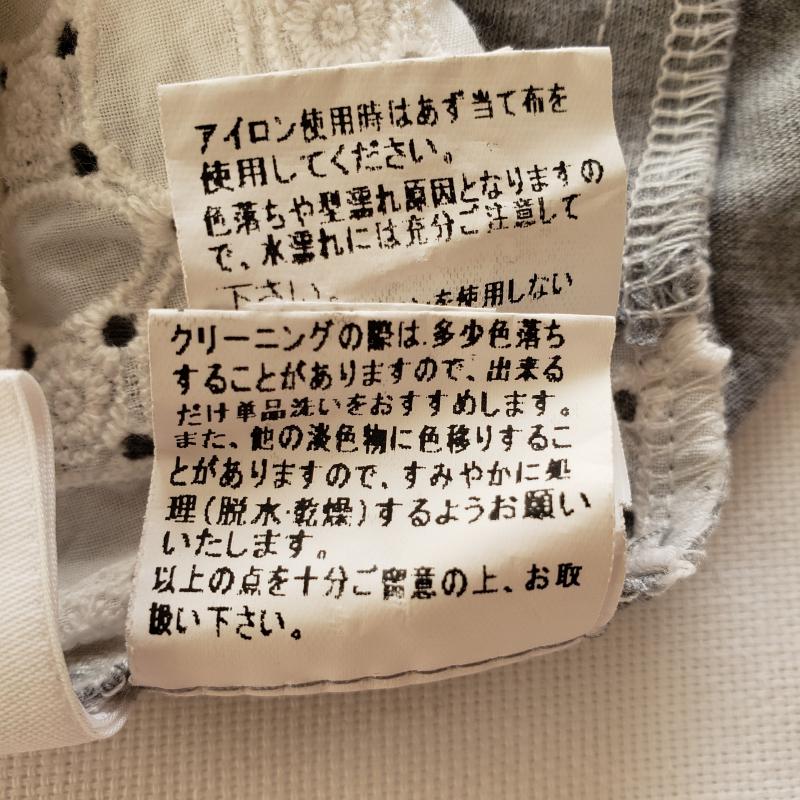 アイロン使用時はあず当て布を
使用してください。
色落ちや型濡れ原因となりますの
で、水濡れには充分ご注意して
下さい。
を使用しない
クリーニングの際は、多少色落ち
することがありますので、出来る
だけ単品洗いをおすすめします。
また、他の淡色物に色移りするこ
とがありますので、すみやかに処
理(脱水・乾燥)するようお願い
いたします。
以上の点を十分ご留意の上、お取
扱い下さい。